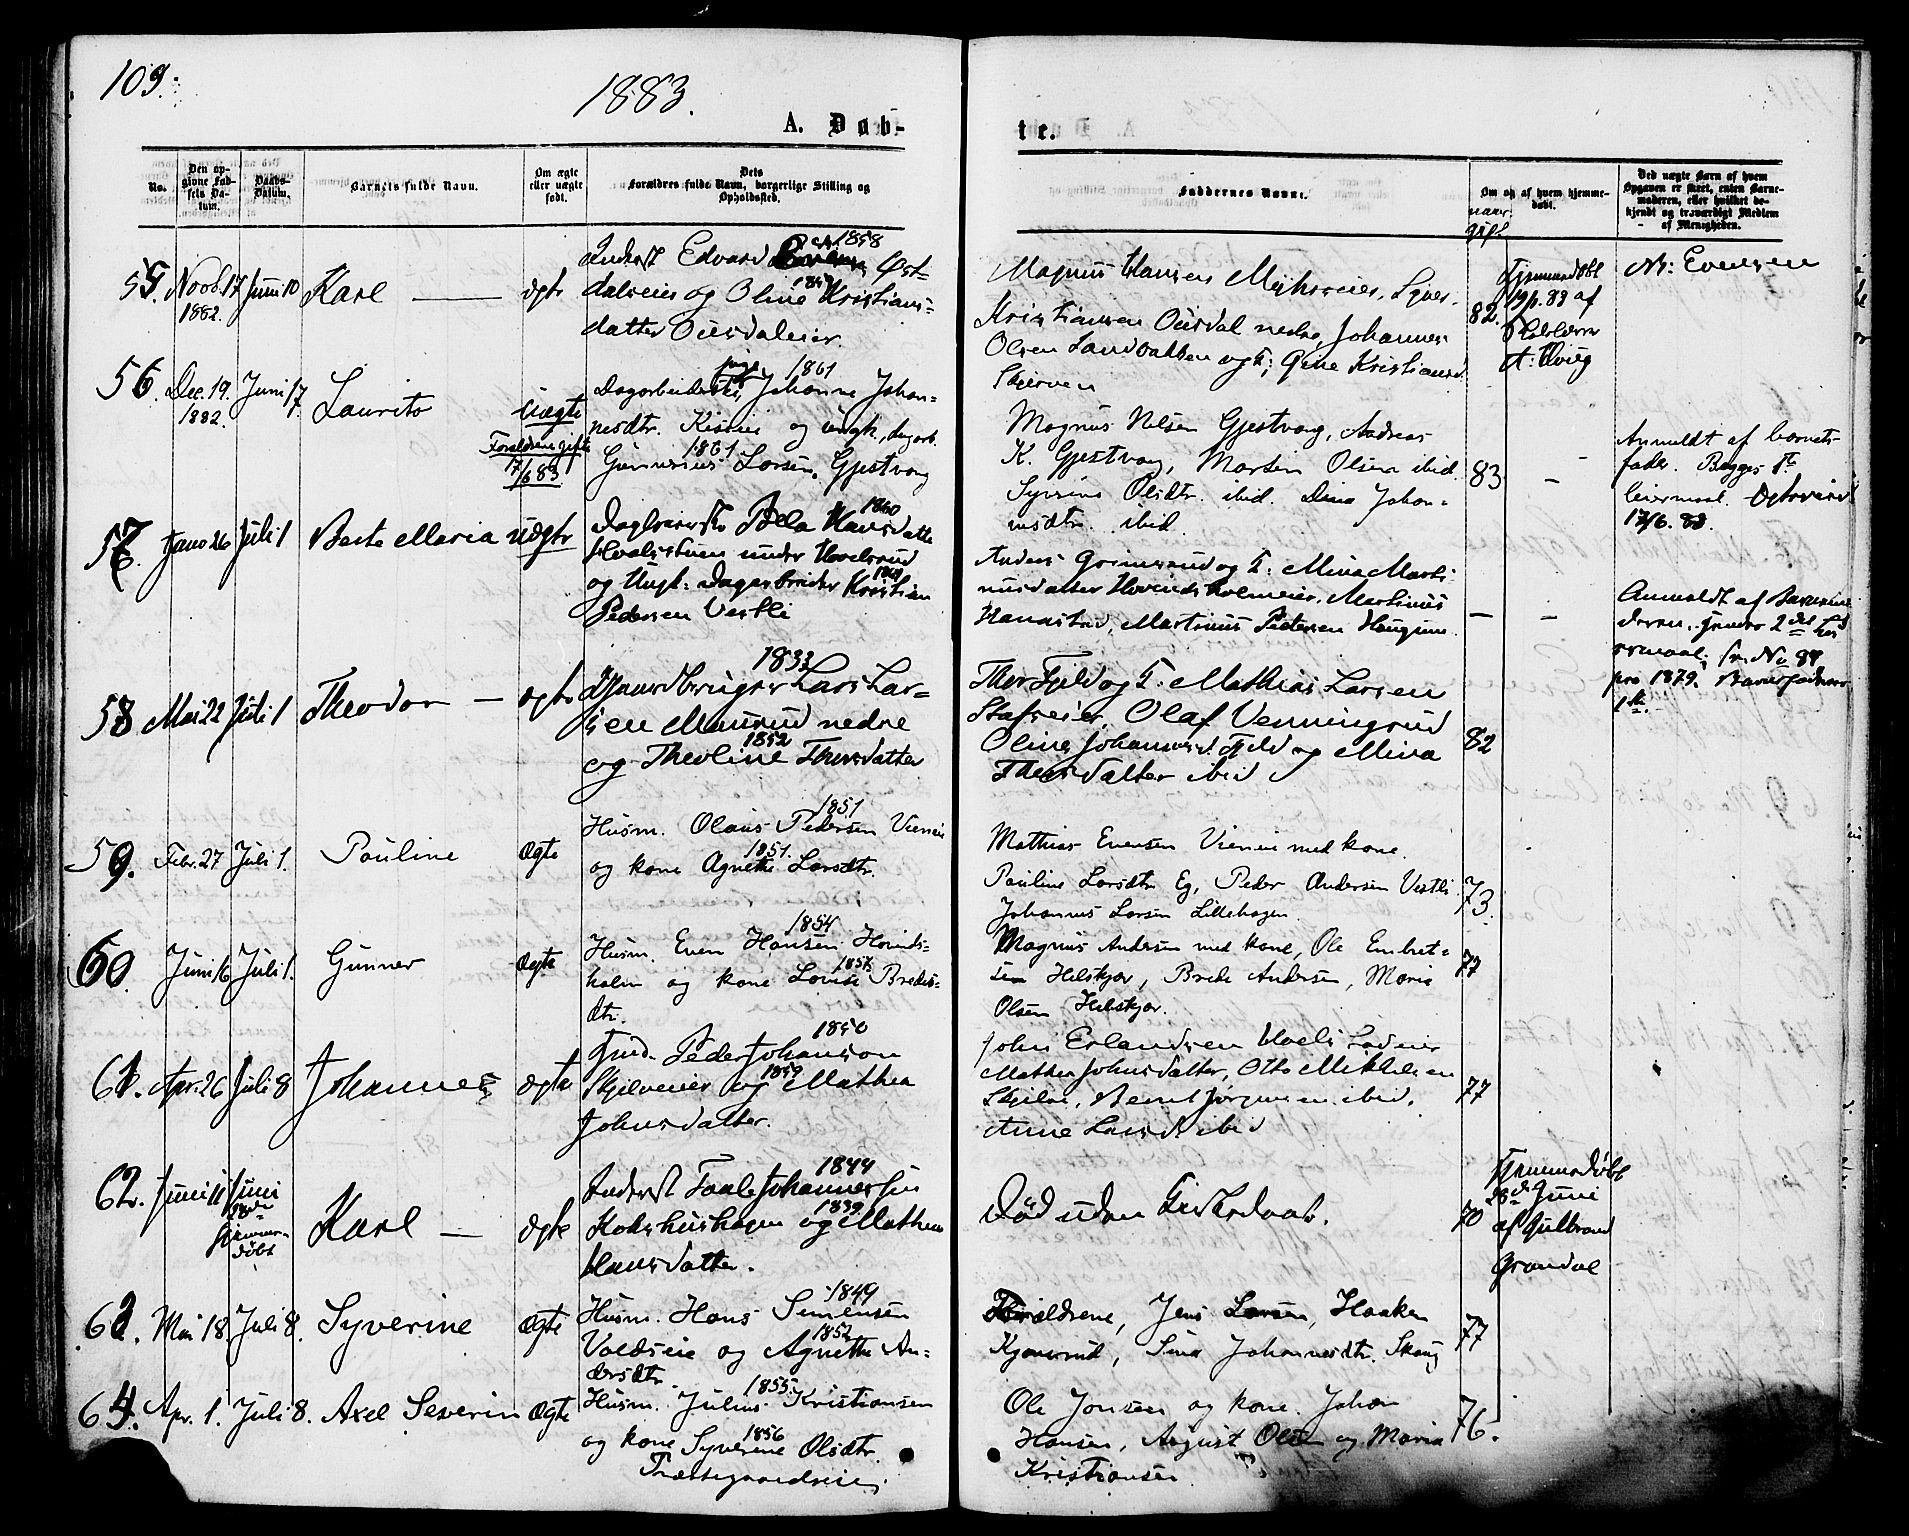 109.
1883.
A. Døb-
te.
No.
Den op-
givne Fød-
sels Da-
tum.
Daabs-
Datum.
Barnets fulde Navn.
Om ægte
eller uægte
født.
Dets
Forældres fulde Navn, borgerlige Stilling og
Opholdssted.
Faddernes Navne.
naar
gift
Om og af hvem hjemme-
døbt.
Ved uægte Børn af hvem
Opgaven er skeet, enten Barne-
moderen, eller hvilket be-
kjendt og troværdigt Medlem
af Menigheden.
55. Novb. 17 1882. Juni 10 Karl ægte
Inderst Edvard 1858 Øst-
dalseier og Oline Kristians-
datter Ousdaleier.
Magnus Hansen Myhrseier, Syver
Kristiansen Ousdal nedre, Johannes
Olsen Sandbakken og F; Gine Kristiansd.
Skjerven
82.
Hjemmedøbt
af
A. Hvieg
Nr: Evensen
56. Dec. 19. 1882. Juni 17. Laurits Uægte
Forældrene gifte
17/6 83
pige 1861
Johanne Johan-
nesdtr. og ungk., dagarb.
1861
Gunerius Larsen, Gjestvang
Magnus Nilsen Gjestvang, Andreas
K. Gjestvang, Martin Olsen ibid.
Syrine Olsdtr. ibid. Dina Johan-
nesdtr. ibid.
83
Anmeldt af barnets
fader. Begges 1ste
leiermaal. Ægteviede
17/6. 83.
57. Janv 26 Juli 1 Berte Maria uægte
1860
Hansdatter
under Hovelsrud
og Ungk: Dagarbeider Kristian
Pedersen Vestli
Anders Grimsrud og F: Mina Marti-
nusdatter Hovindsholmeier, Martinus
Hanestad, Martinus Pedersen Haugnes.
Anmeldt af Barnemo-
deren. 2det Lei-
ermaal, fr. No 84
pro 1879. Barnefaderens
1ste.
58 Mai 22 Juli 1 Theodor ægte
Gaardbruger 1833 Lars Lar-
sen Maurud nedre
1852
og Theoline Thorsdatter
Thor Fjeld og F. Mathias Larsen
Stafseier, Olaf Venningrud
Oline Johannesd. Fjeld og Mina
Thorsdatter ibid
82
59. Febr. 27 Juli 1. Pauline Ægte
1851
Husm. Olaus Pedersen Vieneie
1851.
og kone Agnethe Larsdtr.
Mathias Evensen Vieneie med kone.
Pauline Larsdtr Eg, Peder Andersen Vestli
Johannes Larsen Lillehagen.
73.
60. Juni 16 Juli 1. Gunner Ægte
1854
Husm. Even Hansen Hovinds-
1857
holm og kone Lovise Bredes-
dtr.
Magnus Andersen med kone, Ole Embret-
sen Helskjør, Brede Andersen, Maria
Olsen Helskjør.
77
61. Apr. 26 Juli 8 Johannes ægte
1850
Peder Johanson
1859
Skjelveier og Mathea
Johnsdatter.
John Erlandsen
Mathea Johnsdatter, Otto Mikkelsen
Skjelve, Bernt Jørgensen ibid.
Anne Larsd. ibid
77
62. Juni 11 Juni 28de hjemme-
døbt Karl ægte
1844
Inderst Taale Johannessen
1839
Kokshushagen og Mathea
Hansdatter.
Død uden Kirkedaab.
70
Hjemmedøbt
28de Juni
af Gulbrand
Grandal
63. Mai 18. Juli 8. Syverine Ægte
1849
Husm. Hans Simensen
1852
Voldseie og Agnethe An-
dersdtr.
Forældrene, Jens Larsen, Haaken
Kjønsrud, Sina Johannesdtr. Skaug
77
64. Apr. 1. Juli 8. Axel Severin Ægte
1855.
Husm. Julius Kristiansen
1856
og kone Syverine Olsdtr.
Præstegaardseie
Ole Jonsen og kone. Johan
Hansen, August Olsen og Maria
Kristiansen
76.